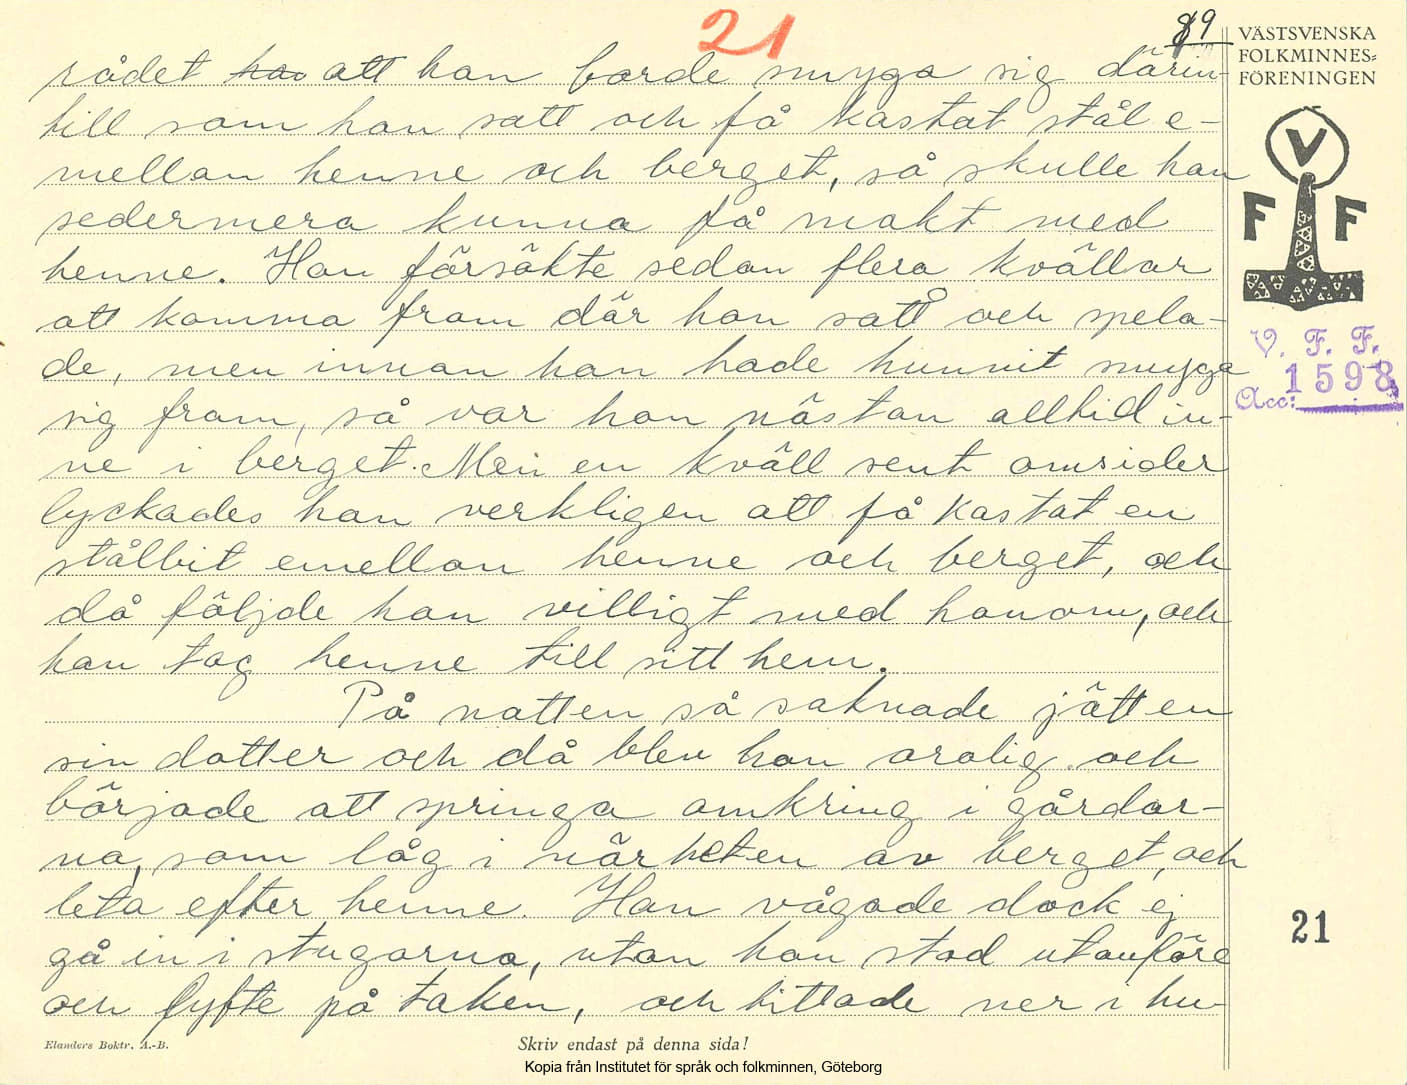 21
89
VÄSTSVENSKA
FOLKMINNES=
FÖRENINGEN
V
F F
V. F. F.
Acc: 1598
rådet hav att han borde smyga sig därin-
till som hon satt och få kastat stål e-
mellan henne och berget, så skulle han
sedermera kunna få makt med
henne. Han försökte sedan flera kvällar
att komma fram där hon satt och spela-
de, men innan han hade hunnit smyga
sig fram, så var hon nästan alltid in-
ne i berget. Men en kväll sent omsider
lyckades han verkligen att få kastat en
stålbit emellan henne och berget, och
då följde hon villigt med honom, och
han tog henne till sitt hem.
På natten så saknade jätten
sin dotter och då blev han orolig och
började att springa omkring i gårdar-
na, som låg i närheten av berget, och
leta efter henne. Han vågade dock ej
gå in i stugorna, utan han stod utanföre
och lyfte på taken, och tittade ner i hu-
21
Elanders Boktr. A.-B.
Skriv endast på denna sida!
Kopia från Institutet för språk och folkminnen, Göteborg